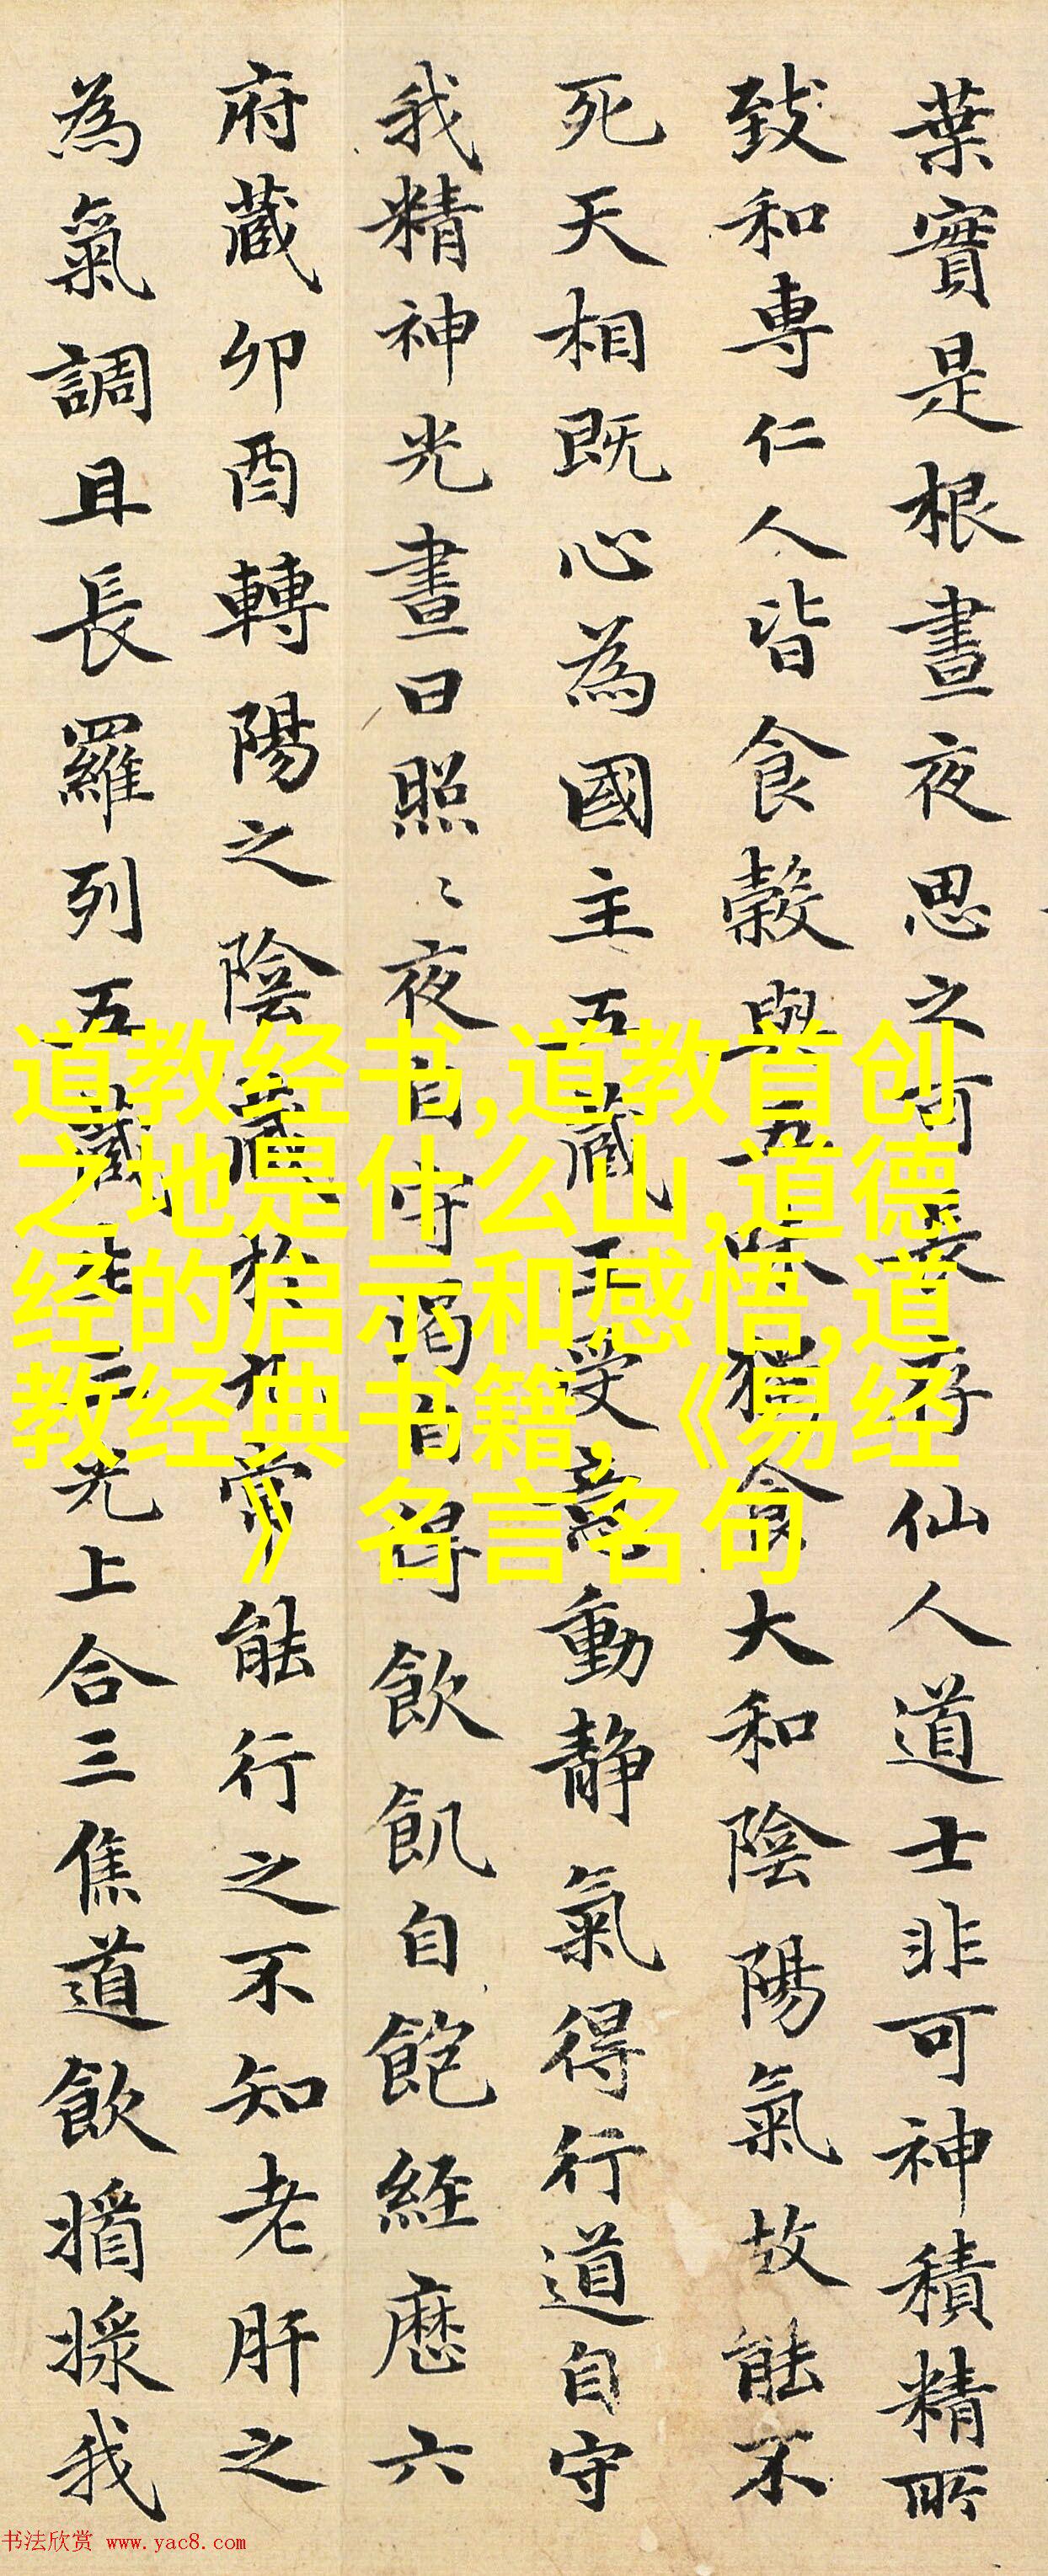 葉實是根晝夜思之可長存仙人道士非可神積精所
致和專仁人皆食穀與五味獨食大和陰陽氣故能不
死天相既心為國主五藏王受意動靜氣得行道自守
我精神光晝日照〻夜自守渴自得飲飢自飽經歷六
府藏卯酉轉陽之陰藏於九常能行之不知老肝之
為氣調且長羅列五藏生三光上合三焦道飲我
道教经书,道教首创
之地是什么山,道德
经的启示和感悟,道
教经典书籍,《易经
》名言名句
书法欣赏 www.yac8.com